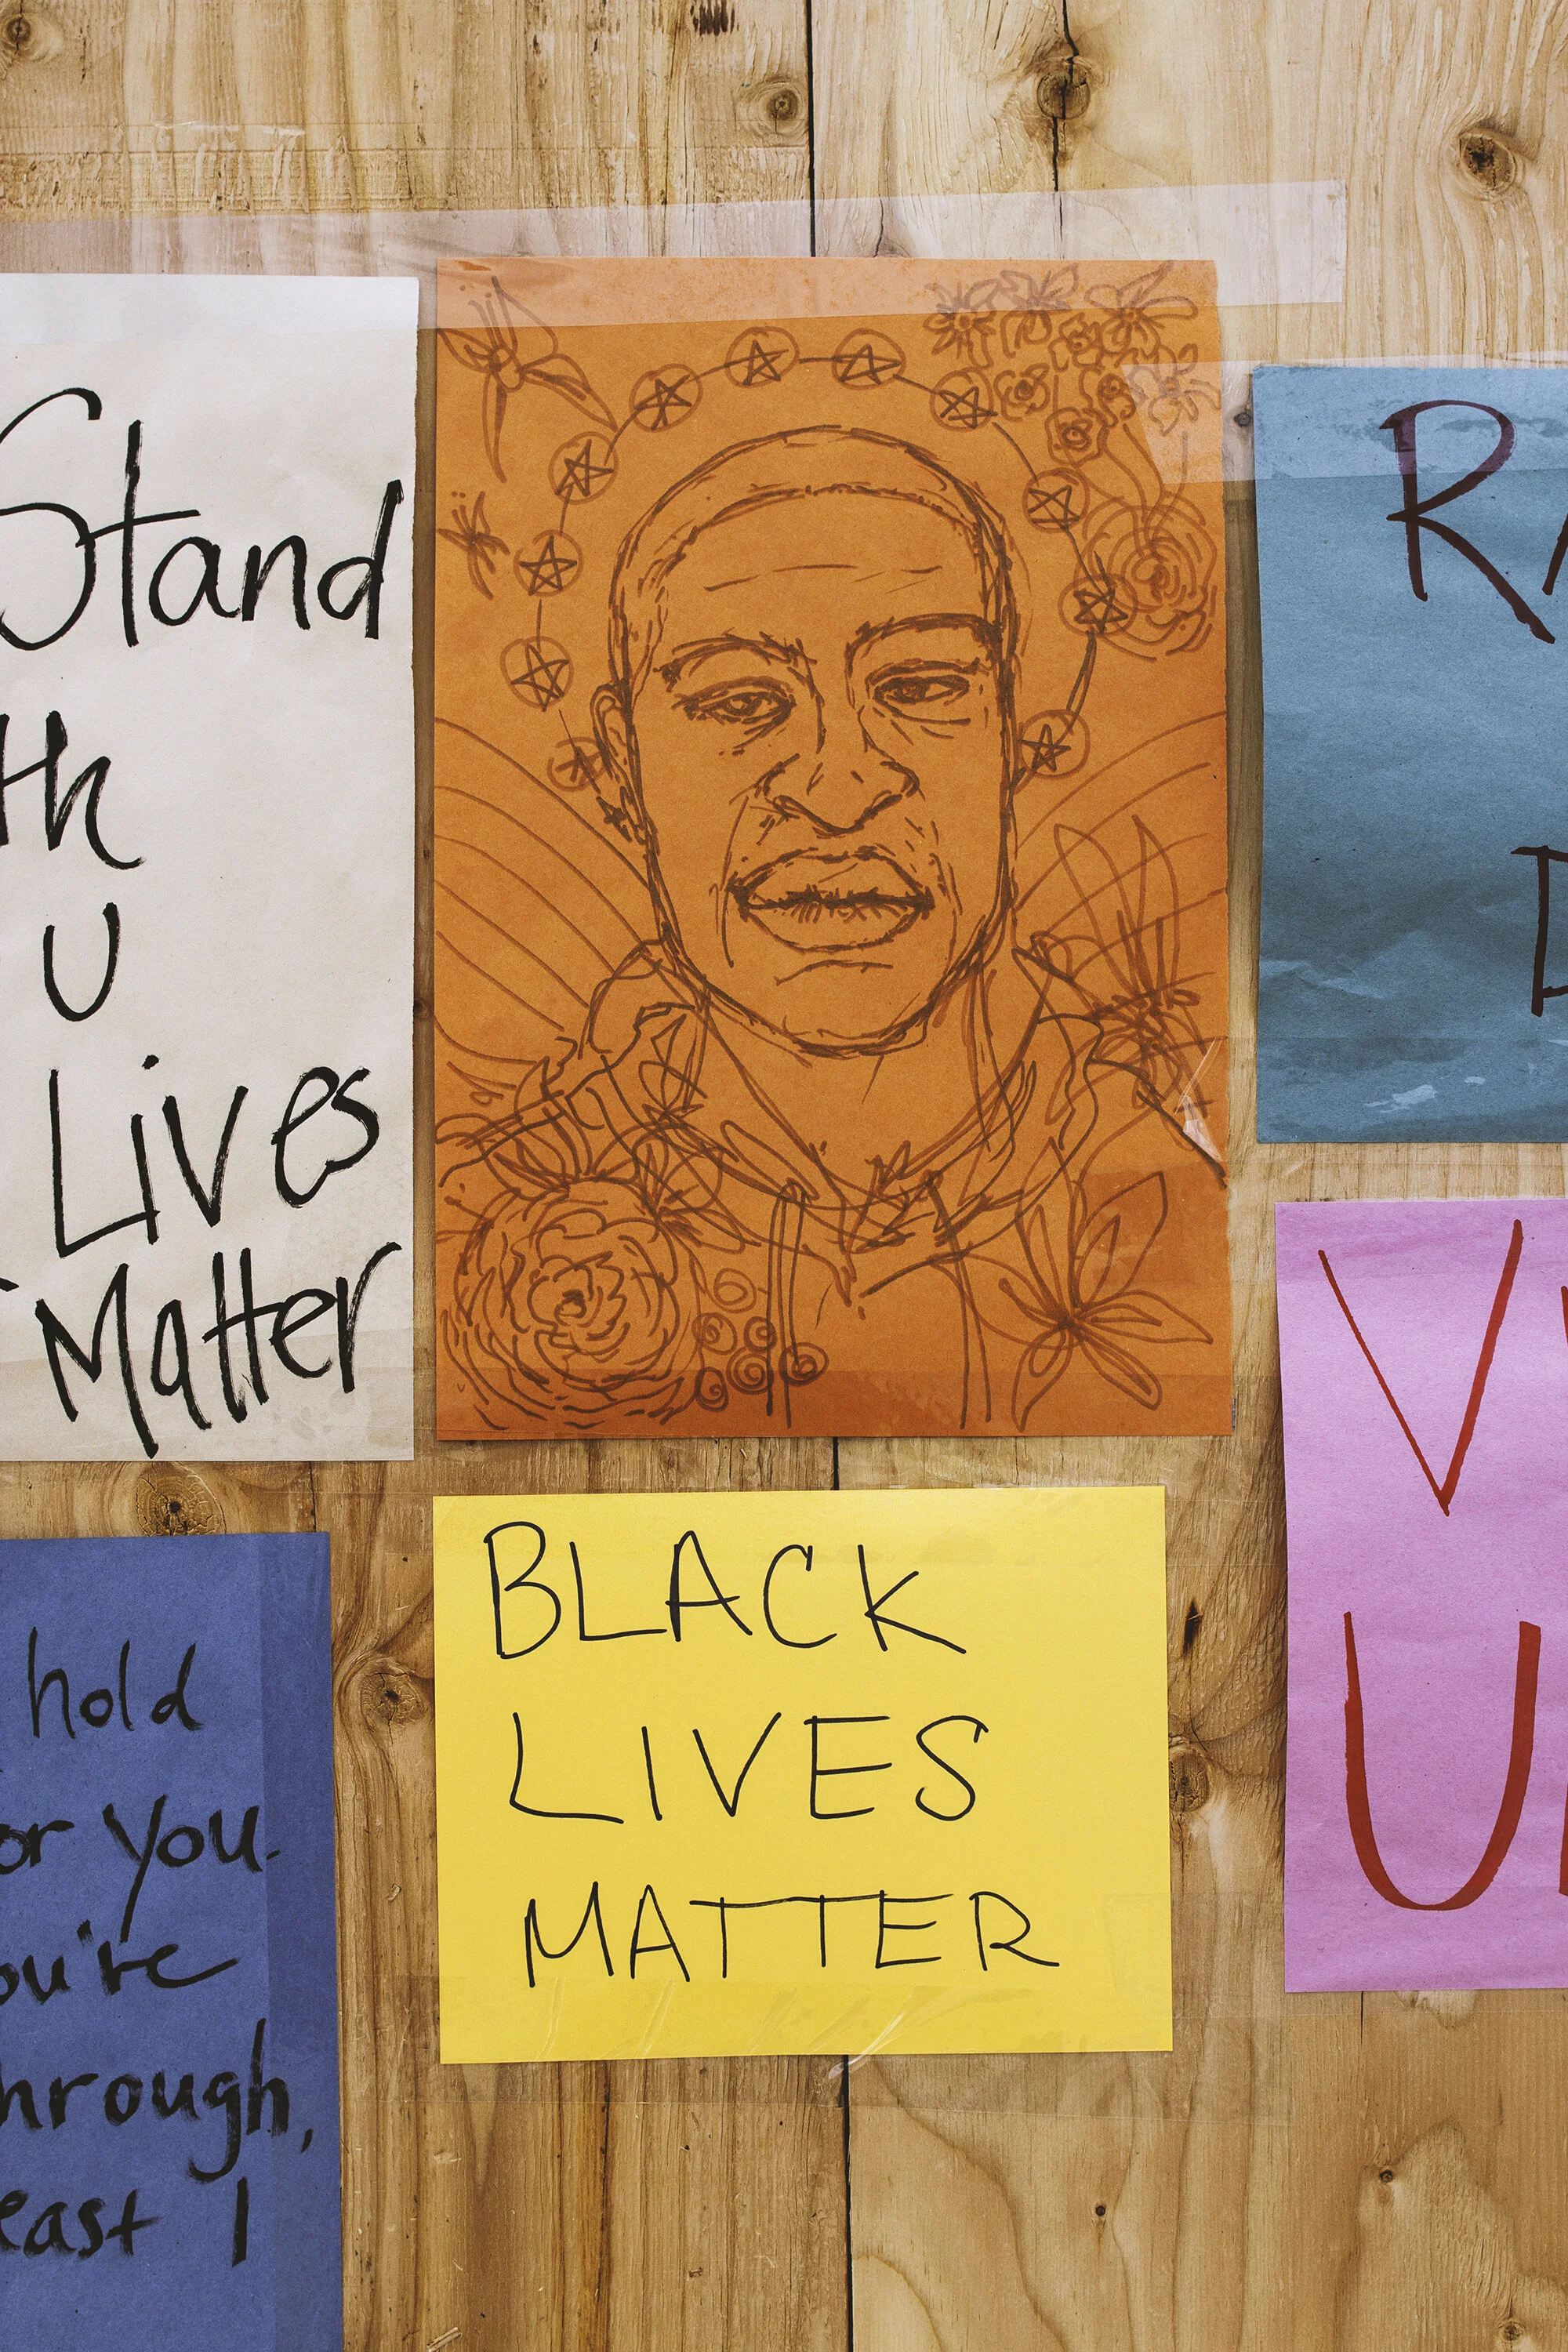 Stand
th
U
Lives
Matter
hold
or you.
ou're
hrough,
east I
BLACK
LIVES
MATTER
R
D
V
U